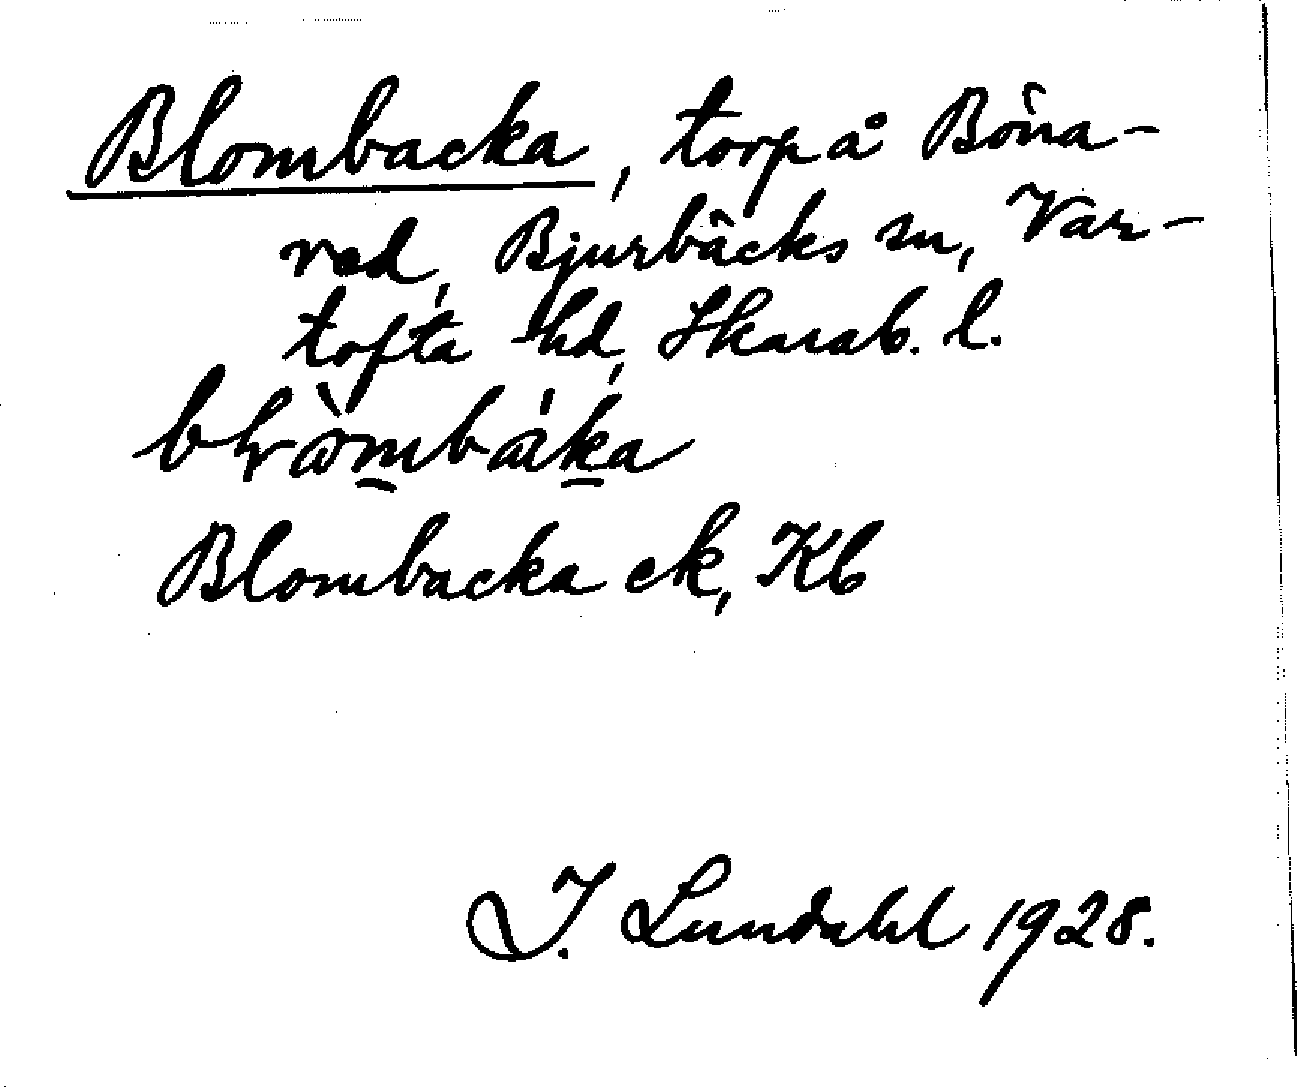 Blombacka, torp å Böna-
red, Bjurbäcks sn, Var-
tofta hd, Skarab. l.
Blombacka ek, Kb
I. Lundahl 1928.